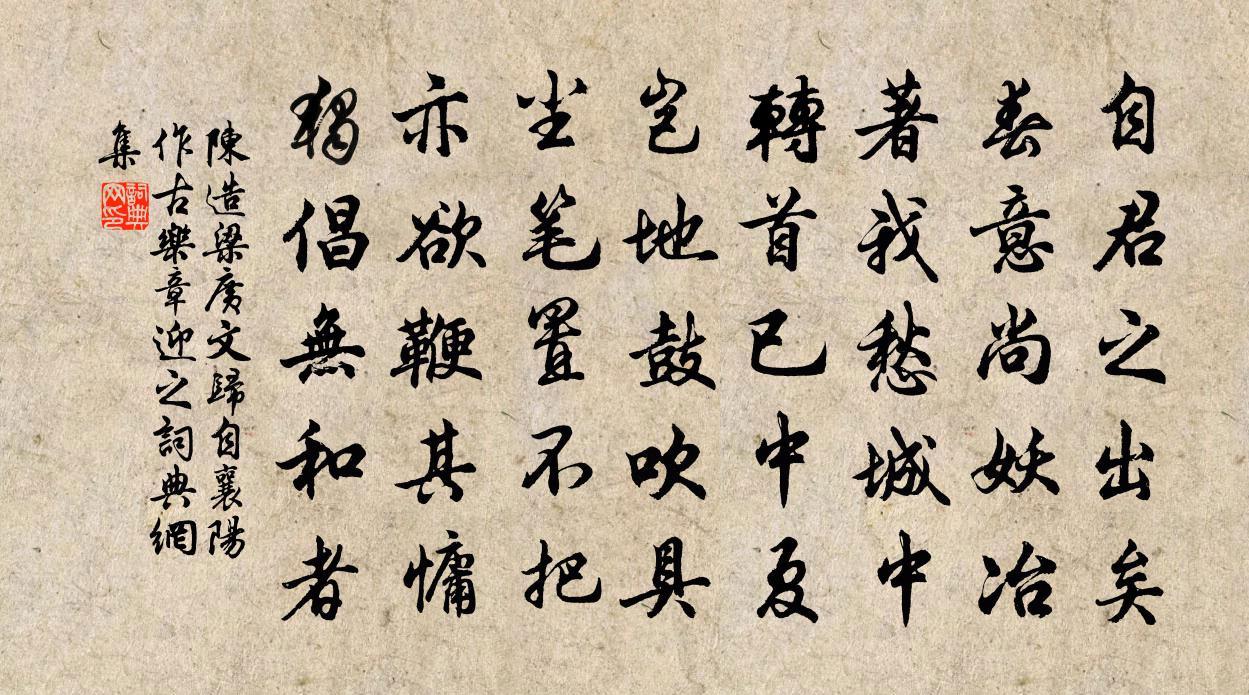 自君之出矣
春意尚妖冶
著我愁城中
轉首已中夏
岂地鼓吹具
尘笔置不把
亦欲鞭其慵
独倡無和者
陳造梁廣文歸自襄陽
作古樂章迎之詞典網
集
詞典网印